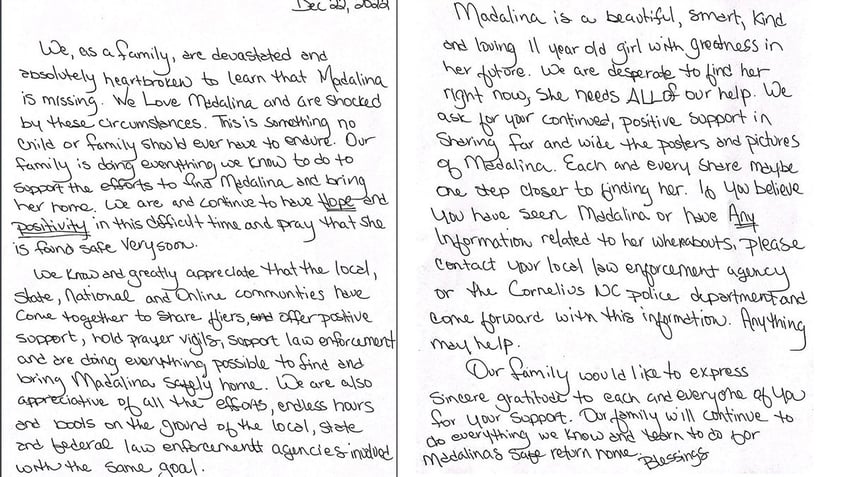 Dec 22, 2022
We, as a family, are devastated and
absolutely heartbroken to learn that Madalina
is missing. We Love Madalina and are shocked
by these circumstances. This is something no
child or family should ever have to endure. Our
family is doing everything we know to do to
support the efforts to find Madalina and bring
her home. We are and continue to have Hope and
positivity in this difficult time and pray that she
is found safe very soon.
We know and greatly appreciate that the local,
State, National and Online communities have
come together to share fliers, and offer positive
support, hold prayer vigils, support law enforcement
and are doing everything possible to find and
bring Madalina safely home. We are also
appreciative of all the efforts, endless hours
and boots on the ground of the local, state
and federal law enforcement agencies involved
with the same goal.
Madalina is a beautiful, smart, kind
and loving 11 year old girl with greatness in
her future. We are desperate to find her
right now, she needs ALL of our help. We
ask for your continued, positive support in
sharing far and wide the posters and pictures
of Madalina. Each and every share maybe
one step closer to finding her. If you believe
you have seen Madalina or have Any
Information related to her whereabouts, please
contact your local law enforcement agency
or the Cornelius NC police department and
come forward with this information. Anything
may help.
Our family would like to express
sincere gratitude to each and everyone of you
for your support. Our family will continue to
do everything we know and learn to do for
Madalinas safe return home. Blessings